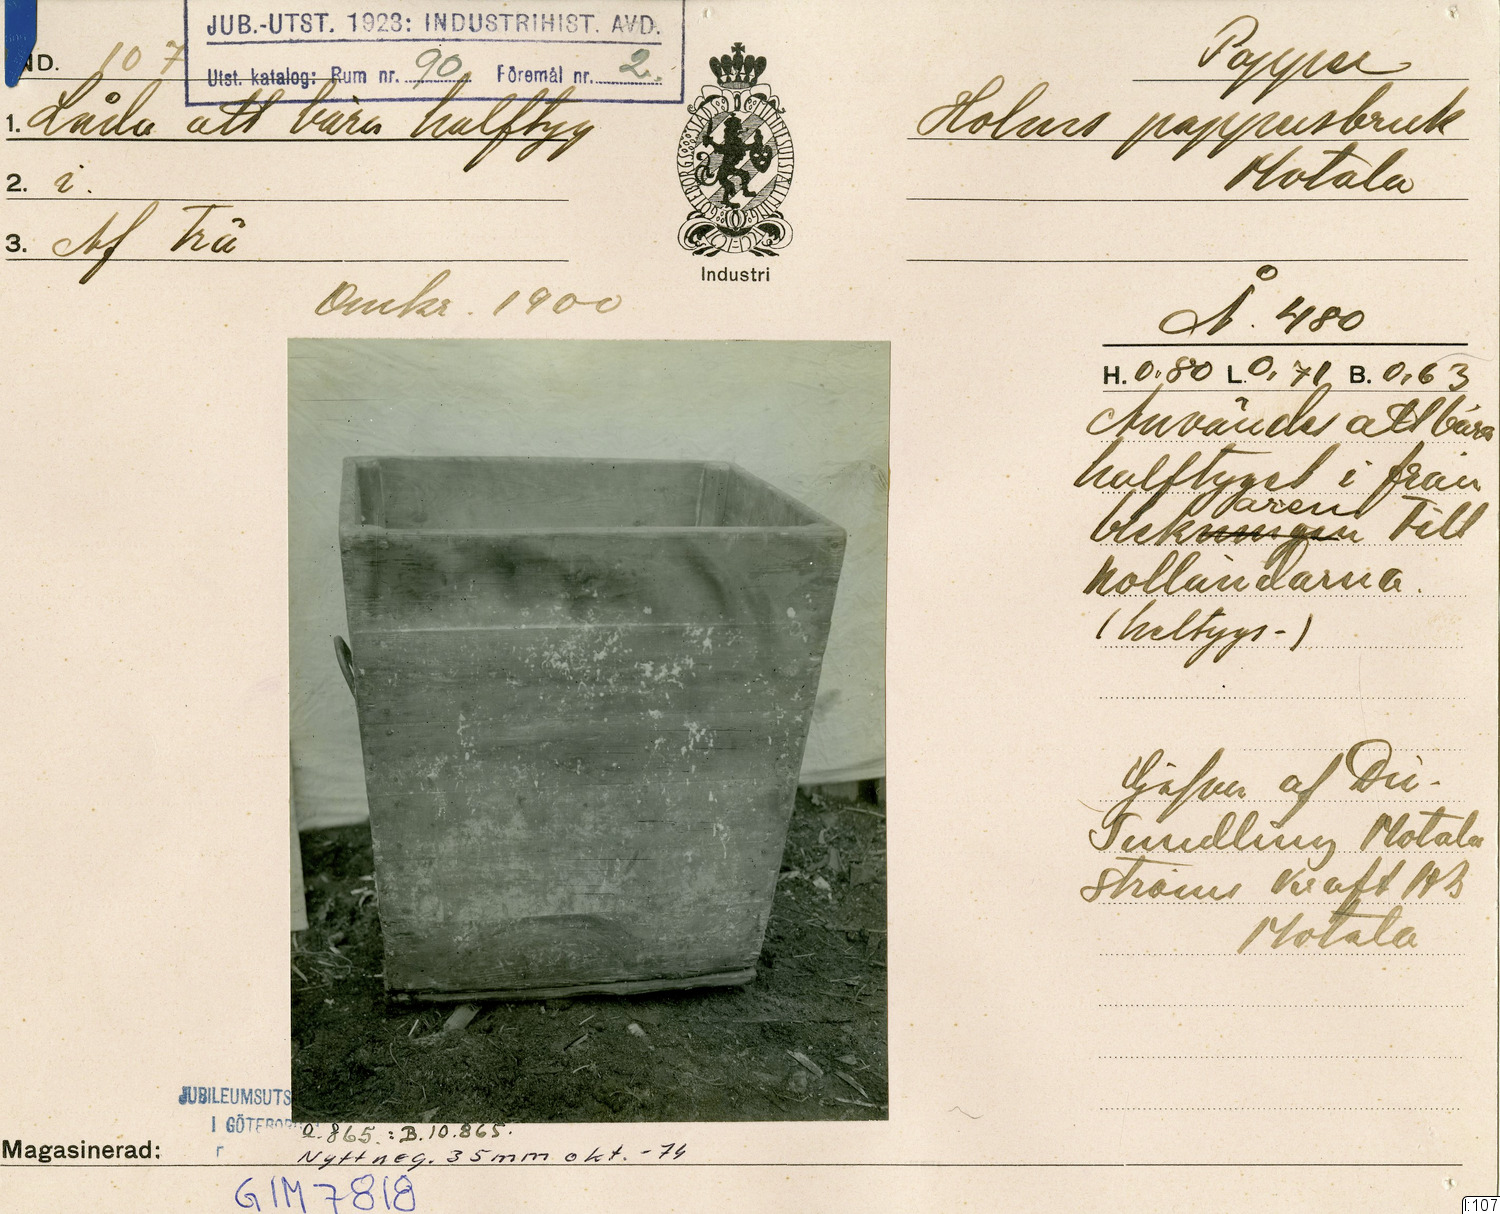 JUB.-UTST. 1923: INDUSTRIHIST. AVD.
Utst. katalog: Rum nr. 90 Föremål nr. 2.
ND. 107
1. Låda att bära halftyg
2. i.
3. Af Trä
Omkr. 1900
GÖTEBORGS STADS MINNESUTSTÄLLNING
Industri
Papper
Holms pappersbruk
Motala
Å. 480
H. 0,80 L. 0,71 B. 0,63
Användes att bära
halftyget i från
aren
blekningen till
holländarna.
(heltygs-)
Gifven af Dir.
Motala
Ströms Kraft AB
Motala
JUBILEUMSUTS
I GÖTEBOR
Magasinerad: r
O.865.:B.10.865.
Nytt neg. 35mm okt. -74
GIM 7818
I:107